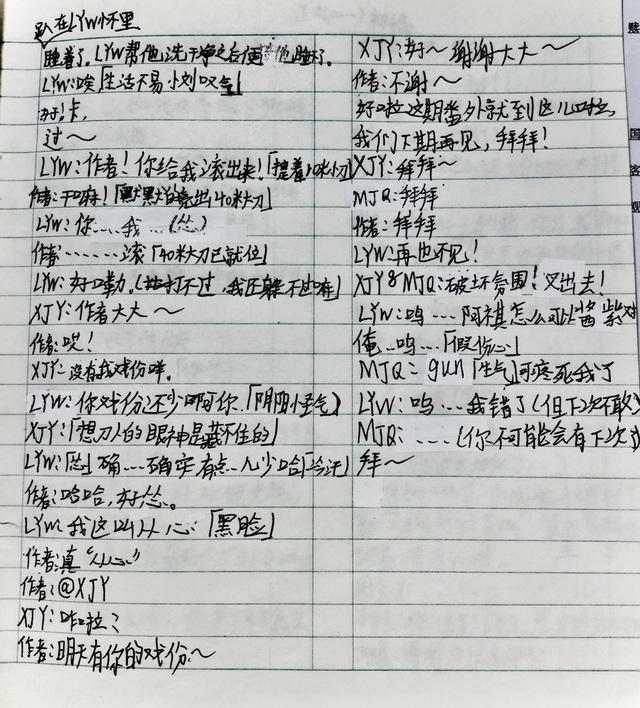 趴在LYW怀里
睡着了。LYW帮他洗干净之后便搂他睡了。
LYW:唉「生活不易小刘叹气」
好!卡,
过～
LYW:作者!你给我滚出来!「提着10米小刀
作者:干嘛!「默默的亮出40米大刀」
LYW:你……我…(怂)
作者……滚「40米大刀已就位」
LYW:好嘞。(打不过,我还躲不过嘛)
XJY:作者大大～
作者:哎!
XJY:没有我戏份咩。
LYW:你戏份还少啊你.「阴阳怪气)
XJY:「想刀人的眼神是藏不住的」
LYW:「怂」确…确实有点…儿少哈「冷汗」
作者:哈哈,好怂。
LYW:我这叫从心「黑脸」
作者:真“从心”
作者:@XJY
XJY:咋啦?
作者:明天有你的戏份～
XJY:好～谢谢大大～
作者:不谢～
好啦这期番外就到这儿啦,
我们下期再见,拜拜!
XJY:拜拜～
MJQ:拜拜
作者:拜拜
LYW:再也不见!
XJY&MJQ:破坏氛围!叉出去!
LYW:呜…阿祺怎么可以酱紫对
俺…呜…「假伤心」
MJQ:gun「生气」可疼死我了
LYW:呜…我错了(但下次还敢)
MJQ:……(你不可能会有下次)
拜～
国
客
观